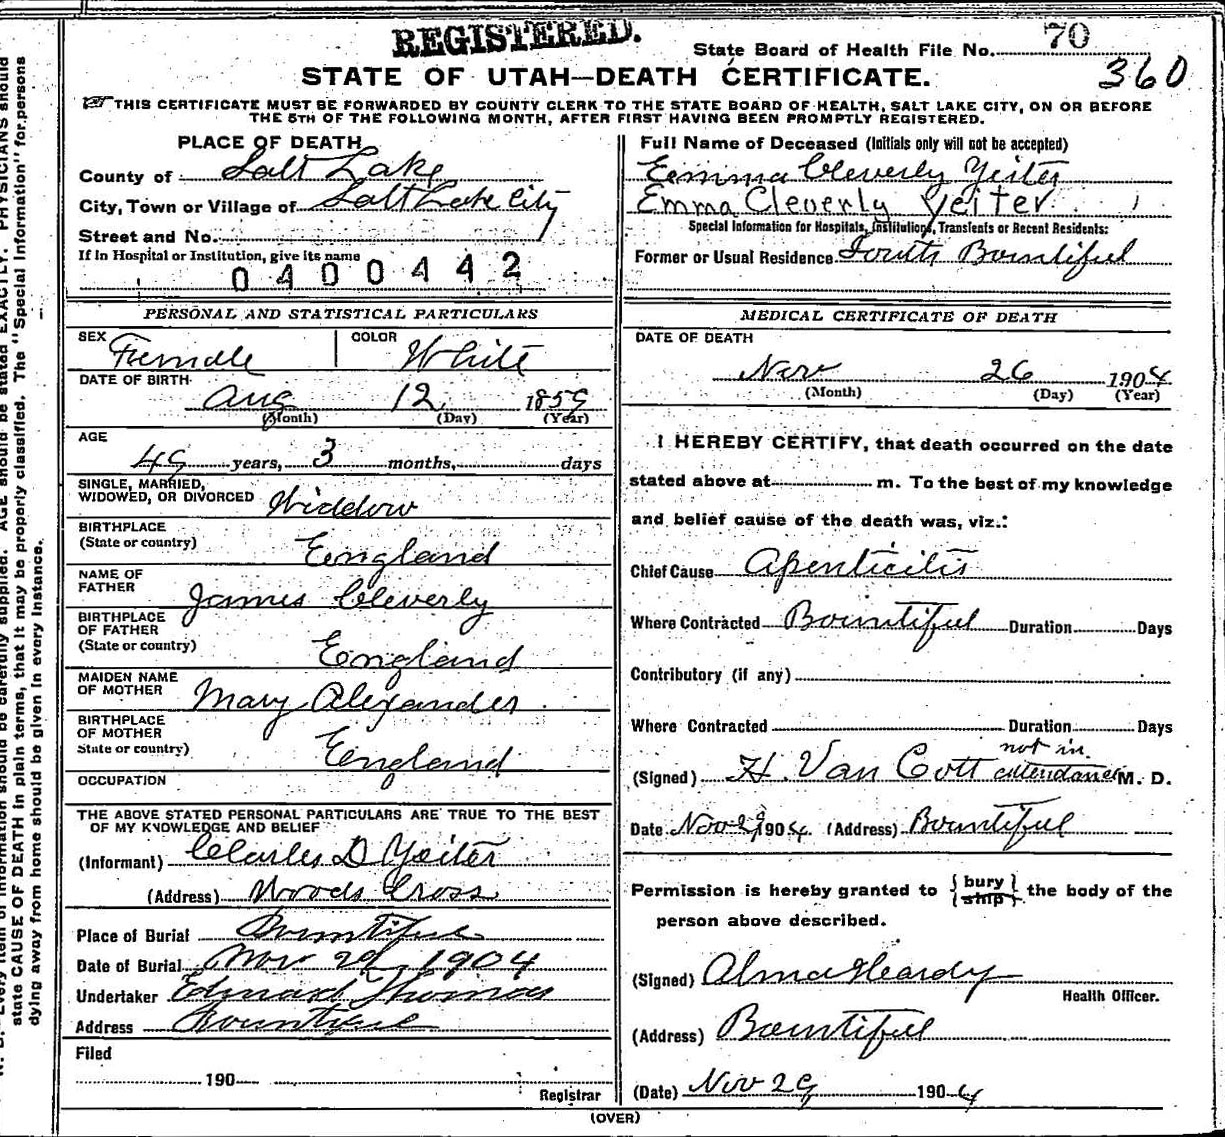 REGISTERED.
State Board of Health File No. 70
360
STATE OF UTAH—DEATH CERTIFICATE.
THIS CERTIFICATE MUST BE FORWARDED BY COUNTY CLERK TO THE STATE BOARD OF HEALTH, SALT LAKE CITY, ON OR BEFORE
THE 5TH OF THE FOLLOWING MONTH, AFTER FIRST HAVING BEEN PROMPTLY REGISTERED.
PLACE OF DEATH
County of Salt Lake
City, Town or Village of Salt Lake City
Street and No.
If in Hospital or Institution, give its name
0400442
Full Name of Deceased (Initials only will not be accepted)
Emma Cleverly Yeiter
Emma Cleverly Yeiter
Special Information for Hospitals, Institutions, Transients or Recent Residents:
Former or Usual Residence South Bountiful
PERSONAL AND STATISTICAL PARTICULARS
SEX Female COLOR White
DATE OF BIRTH
Aug 12 1859
(Month) (Day) (Year)
AGE
49 years, 3 months, days
SINGLE, MARRIED,
WIDOWED, OR DIVORCED Widdow
BIRTHPLACE
(State or country) England
NAME OF
FATHER James Cleverly
BIRTHPLACE
OF FATHER
(State or country) England
MAIDEN NAME
OF MOTHER Mary Alexander
BIRTHPLACE
OF MOTHER
State or country) England
OCCUPATION
THE ABOVE STATED PERSONAL PARTICULARS ARE TRUE TO THE BEST
OF MY KNOWLEDGE AND BELIEF
(Informant) Charles D Yeiter
(Address) Woods Cross
Place of Burial Bountiful
Date of Burial Nov 29 1904
Undertaker Edward Thomas
Address Bountiful
Filed
190
Registrar
MEDICAL CERTIFICATE OF DEATH
DATE OF DEATH
Nov 26 1904
(Month) (Day) (Year)
I HEREBY CERTIFY, that death occurred on the date
stated above at m. To the best of my knowledge
and belief cause of the death was, viz.:
Chief Cause Apenticitis
Where Contracted Bountiful Duration Days
Contributory (if any)
Where Contracted Duration Days
not in
(Signed) H. Van Cott attendance M. D.
Date Nov 29 1904. (Address) Bountiful
Permission is hereby granted to {bury} the body of the
{ship}
person above described.
(Signed) Alma Heardy
Health Officer.
(Address) Bountiful
(Date) Nov 29 1904
(OVER)
Every item of information should be carefully supplied. AGE should be stated EXACTLY. PHYSICIANS should
state CAUSE OF DEATH in plain terms, that it may be properly classified. The "Special Information" for persons
dying away from home should be given in every instance.